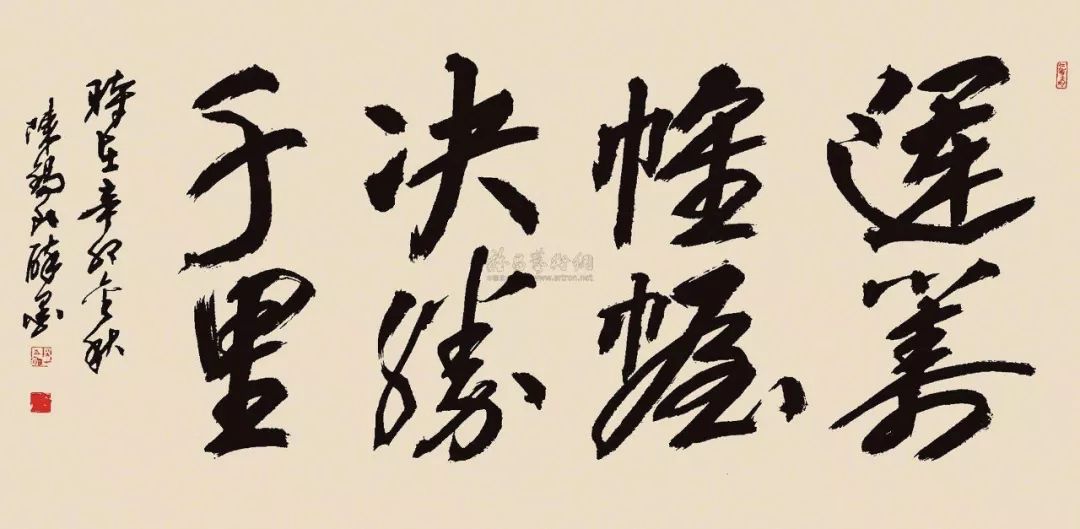 運籌
帷幄
决勝
千里
時在辛卯金秋
陳錫 醉墨
雅昌藝術網
www.artron.net